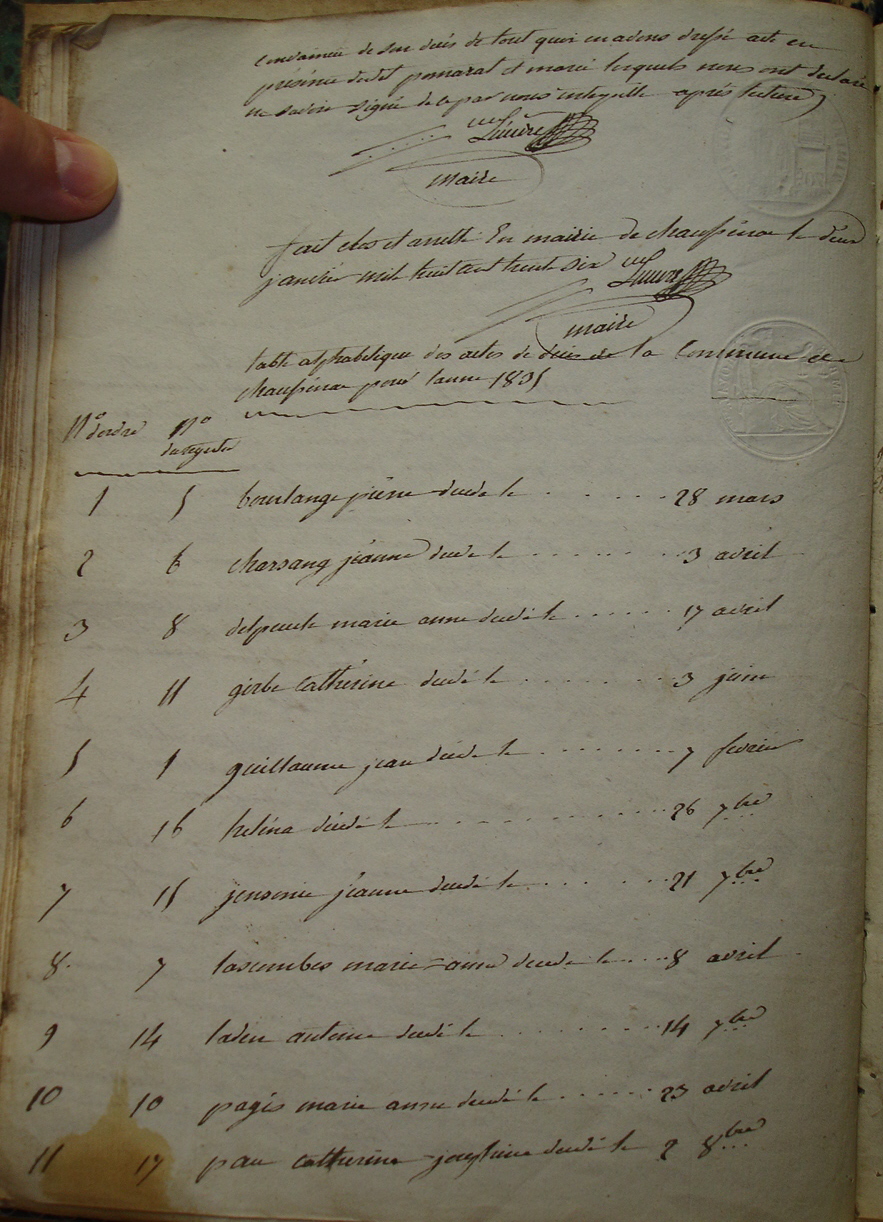 de son décès de tout quoi en avons dressé acte en
présence dudit pomarat et lesquels nous ont déclaré
ne savoir signé de ce par nous interpellé après lecture
maire
fait clos et arretté En mairie de chaussenac le deux
janvier mil huit cent trente six
maire
table alphabetique des actes de décès de la Commune de
chaussenac pour l'anné 1835
N° d'ordre N° du registre
1 5 boulange pierre décédé le 28 mars
2 6 charsang jeanne décédé le 3 avril
3 8 delpeuch marie anne décédé le 17 avril
4 11 girbe Catherine décédé le 3 juin
5 1 guillaume jean décédé le 7 fevrier
6 16 helena décédé le 26 7bre
7 15 jeanne décédé le 21 7bre
8 7 lascombes marie=anne décédé le 8 avril
9 14 antoine décédé le 14 7bre
10 10 pagis marie anne décédé le 23 avril
11 17 pau Catherine décédé le 2 8bre